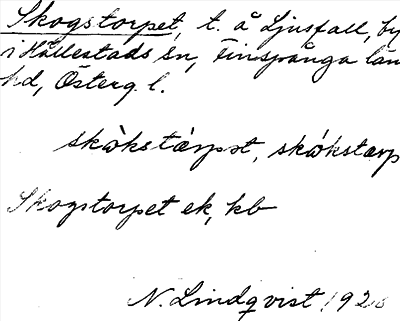 Skogstorpet, t. å Ljusfall, by
i Hällestads sn, Finspånga län
hd, Österg. l.
skὼkstὰrpət, skώkstarp
Skogstorpet ek, kb
N. Lindqvist 1926